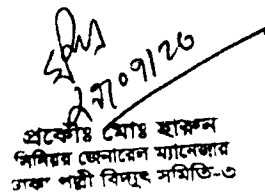 ২৭/০৭/২০
প্রকৌঃ মোঃ হারুন
সিনিয়র জেনারেল ম্যানেজার
ঢাকা পল্লী বিদ্যুৎ সমিতি-৩